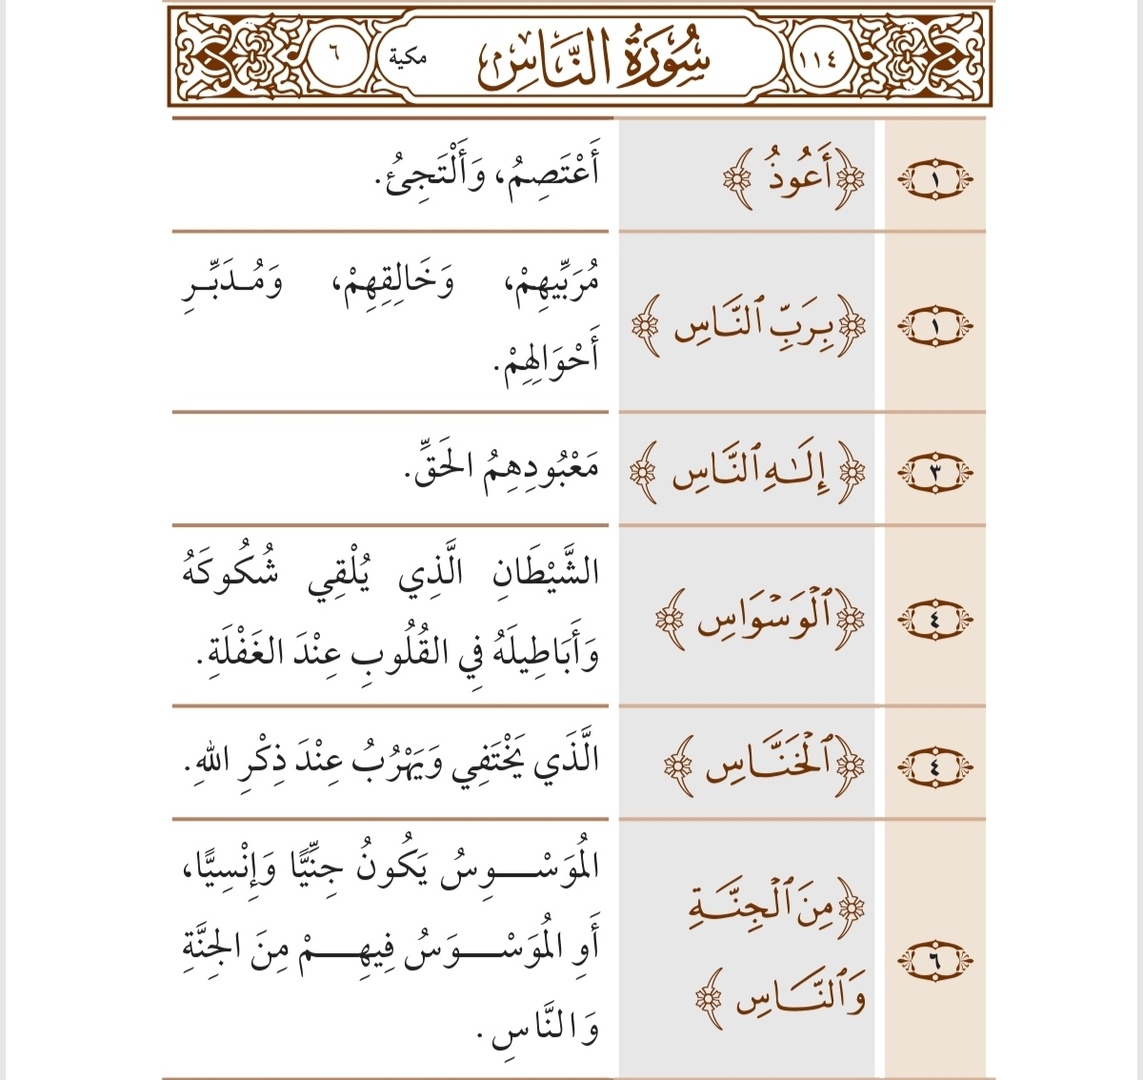 ١١٤ سُورَةُ النَّاسِ مكية ٦
١ ﴿أَعُوذُ﴾ أَعْتَصِمُ، وَأَلْتَجِئُ.
١ ﴿بِرَبِّ ٱلنَّاسِ﴾ مُرَبِّيهِمْ، وَخَالِقِهِمْ، وَمُدَبِّرِ
أَحْوَالِهِمْ.
٣ ﴿إِلَـٰهِ ٱلنَّاسِ﴾ مَعْبُودِهِمُ الحَقِّ.
٤ ﴿ٱلْوَسْوَاسِ﴾ الشَّيْطَانِ الَّذِي يُلْقِي شُكُوكَهُ
وَأَبَاطِيلَهُ فِي القُلُوبِ عِنْدَ الغَفْلَةِ.
٤ ﴿ٱلْخَنَّاسِ﴾ الَّذَي يَخْتَفِي وَيَهْرُبُ عِنْدَ ذِكْرِ اللهِ.
٦ ﴿مِنَ ٱلْجِنَّةِ
وَٱلنَّاسِ﴾
المُوَسْوِسُ يَكُونُ جِنِّيًّا وَإِنْسِيًّا،
أَوِ المُوَسْوَسُ فِيهِمْ مِنَ الجِنَّةِ
وَالنَّاسِ.